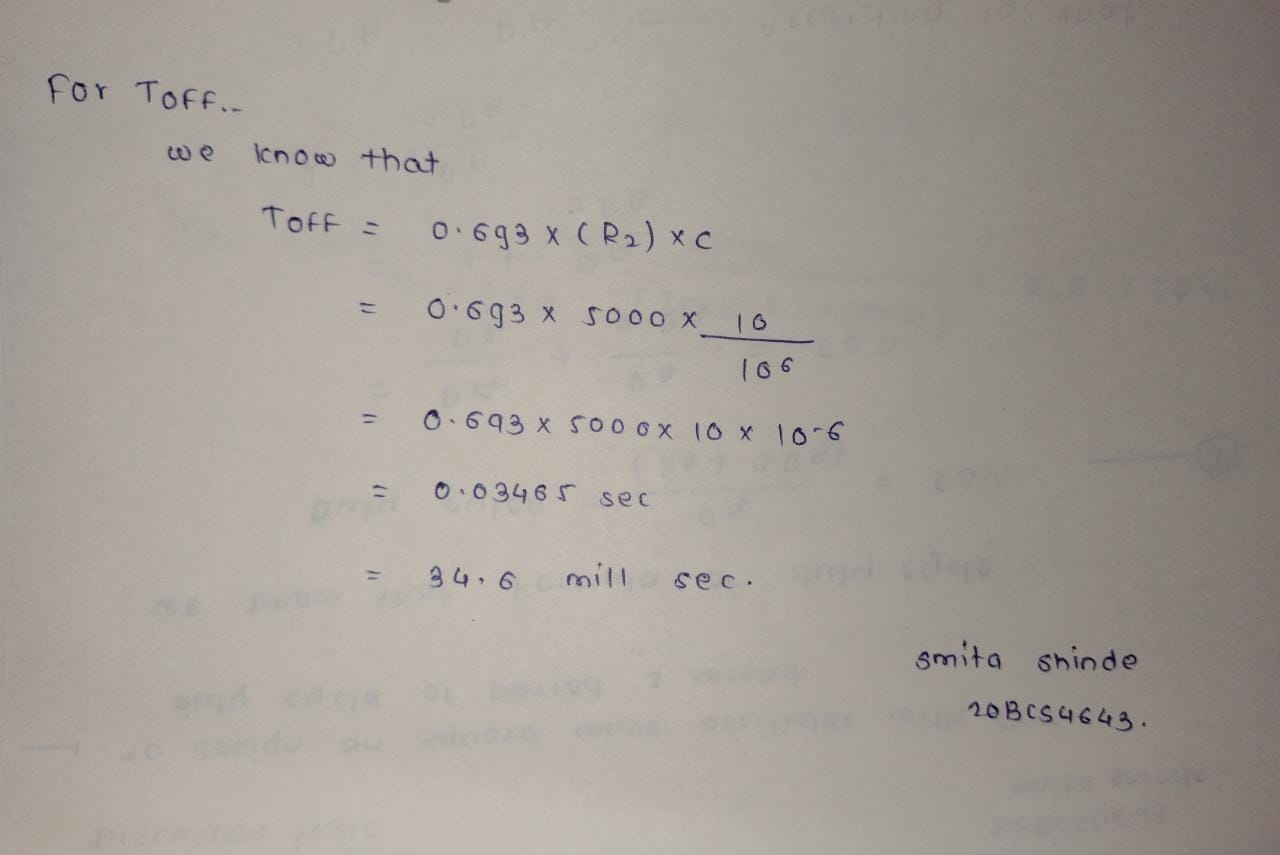 For Toff..
we know that
Toff = 0.693 x (R2) x C
= 0.693 x 5000 x 10
106
= 0.693 x 5000x 10 x 10-6
= 0.03465 sec
= 34.6 mill sec.
smita shinde
20BCS4643.